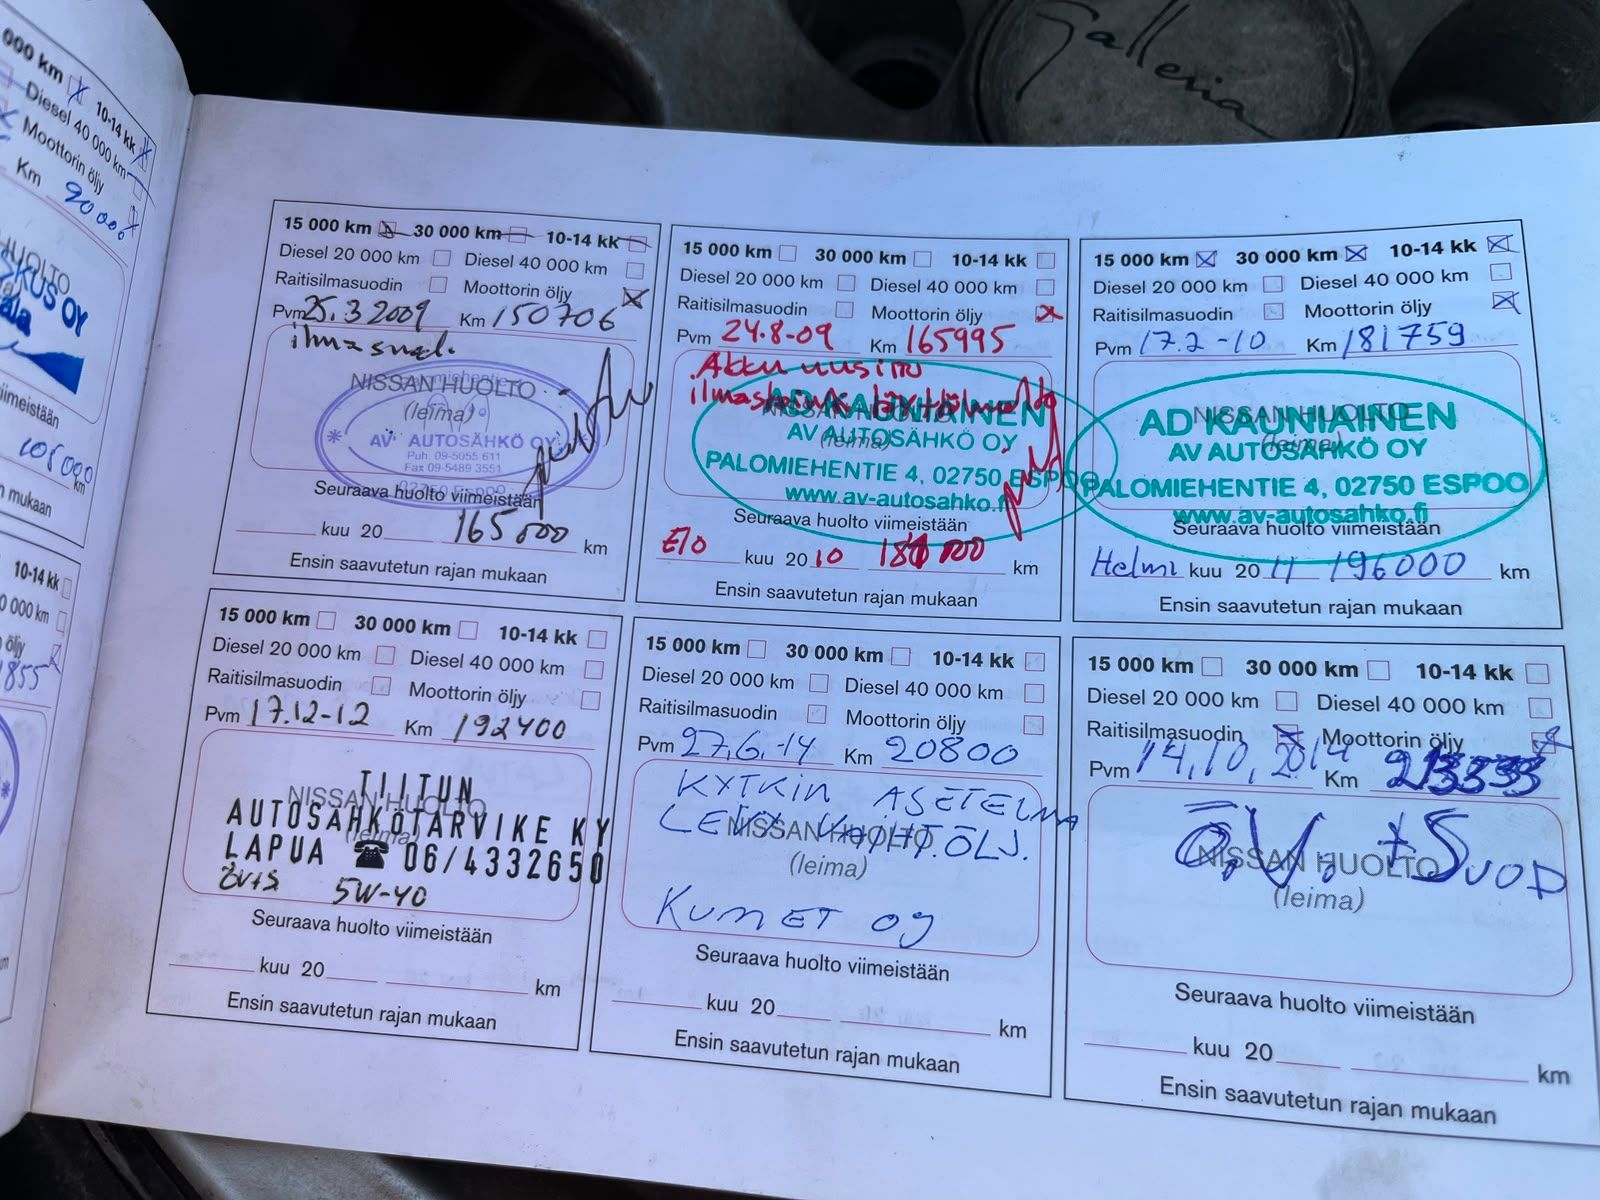 Galleria
000 km 10-14 kk
Diesel 40 000 km
Moottorin öljy
Km 90000
HUOLTO
OY
viimeistään
105000 km
mukaan
10-14 kk
öljy
1855
15 000 km 30 000 km 10-14 kk
Diesel 20 000 km Diesel 40 000 km
Raitisilmasuodin Moottorin öljy
Pvm 25.3 2009 Km 150706
ilmasuod.
NISSAN HUOLTO
(leima)
AV AUTOSÄHKÖ OY
Puh. 09-5055 611
Fax 09-5489 3551
02750 ESPOO
Seuraava huolto viimeistään
kuu 20 165000 km
Ensin saavutetun rajan mukaan
15 000 km 30 000 km 10-14 kk
Diesel 20 000 km Diesel 40 000 km
Raitisilmasuodin Moottorin öljy
Pvm 24.8-09 Km 165995
Akku uusittu
NISSAN HUOLTO
(leima)
AD KAUNIAINEN
AV AUTOSÄHKÖ OY
PALOMIEHENTIE 4, 02750 ESPOO
www.av-autosahko.fi
Seuraava huolto viimeistään
Elo kuu 20 10 km
Ensin saavutetun rajan mukaan
15 000 km 30 000 km 10-14 kk
Diesel 20 000 km Diesel 40 000 km
Raitisilmasuodin Moottorin öljy
Pvm 17.2-10 Km 181759
NISSAN HUOLTO
(leima)
AD KAUNIAINEN
AV AUTOSÄHKÖ OY
PALOMIEHENTIE 4, 02750 ESPOO
www.av-autosahko.fi
Seuraava huolto viimeistään
Helmi kuu 20 11 196000 km
Ensin saavutetun rajan mukaan
15 000 km 30 000 km 10-14 kk
Diesel 20 000 km Diesel 40 000 km
Raitisilmasuodin Moottorin öljy
Pvm 17.12-12 Km 192400
NISSAN HUOLTO
(leima)
TIITUN
AUTOSÄHKÖTARVIKE KY
LAPUA ☎ 06/4332650
öv+s 5W-40
Seuraava huolto viimeistään
kuu 20 km
Ensin saavutetun rajan mukaan
15 000 km 30 000 km 10-14 kk
Diesel 20 000 km Diesel 40 000 km
Raitisilmasuodin Moottorin öljy
Pvm 27.6.-14 Km 20800
KYTKIN ASETELMA
NISSAN HUOLTO
(leima)
KUMET OY
Seuraava huolto viimeistään
kuu 20 km
Ensin saavutetun rajan mukaan
15 000 km 30 000 km 10-14 kk
Diesel 20 000 km Diesel 40 000 km
Raitisilmasuodin Moottorin öljy
Pvm 14.10.2014 Km
Ö.V. +SUOD
NISSAN HUOLTO
(leima)
Seuraava huolto viimeistään
kuu 20 km
Ensin saavutetun rajan mukaan